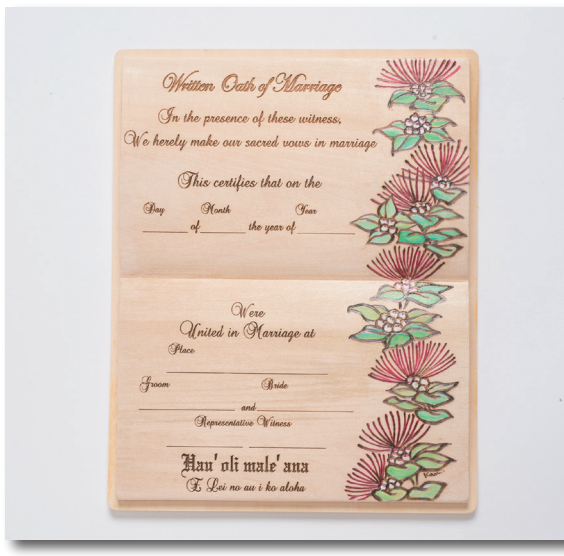 Written Oath of Marriage
In the presence of these witness,
We herely make our sacred vows in marriage
This certifies that on the
Day Month Year
of the year of
Were
United in Marriage at
Place
Groom Bride
and
Representative Witness
Hau'oli male'ana
E Lei no au i ko aloha